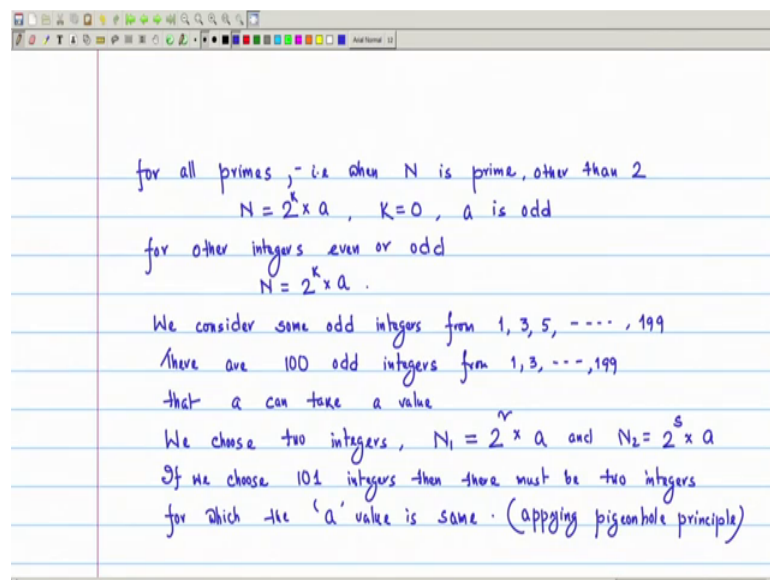 Arial Normal 12
for all primes, - i.e when N is prime, other than 2
N = 2^K x a , K=0, a is odd
for other integers even or odd
N = 2^K x a .
We consider some odd integers from 1, 3, 5, ----, 199
There are 100 odd integers from 1, 3, ---, 199
that a can take a value
We choose two integers, N₁ = 2^r x a and N₂ = 2^s x a
If we choose 101 integers then there must be two integers
for which the 'a' value is same . (appying pigeonhole principle)